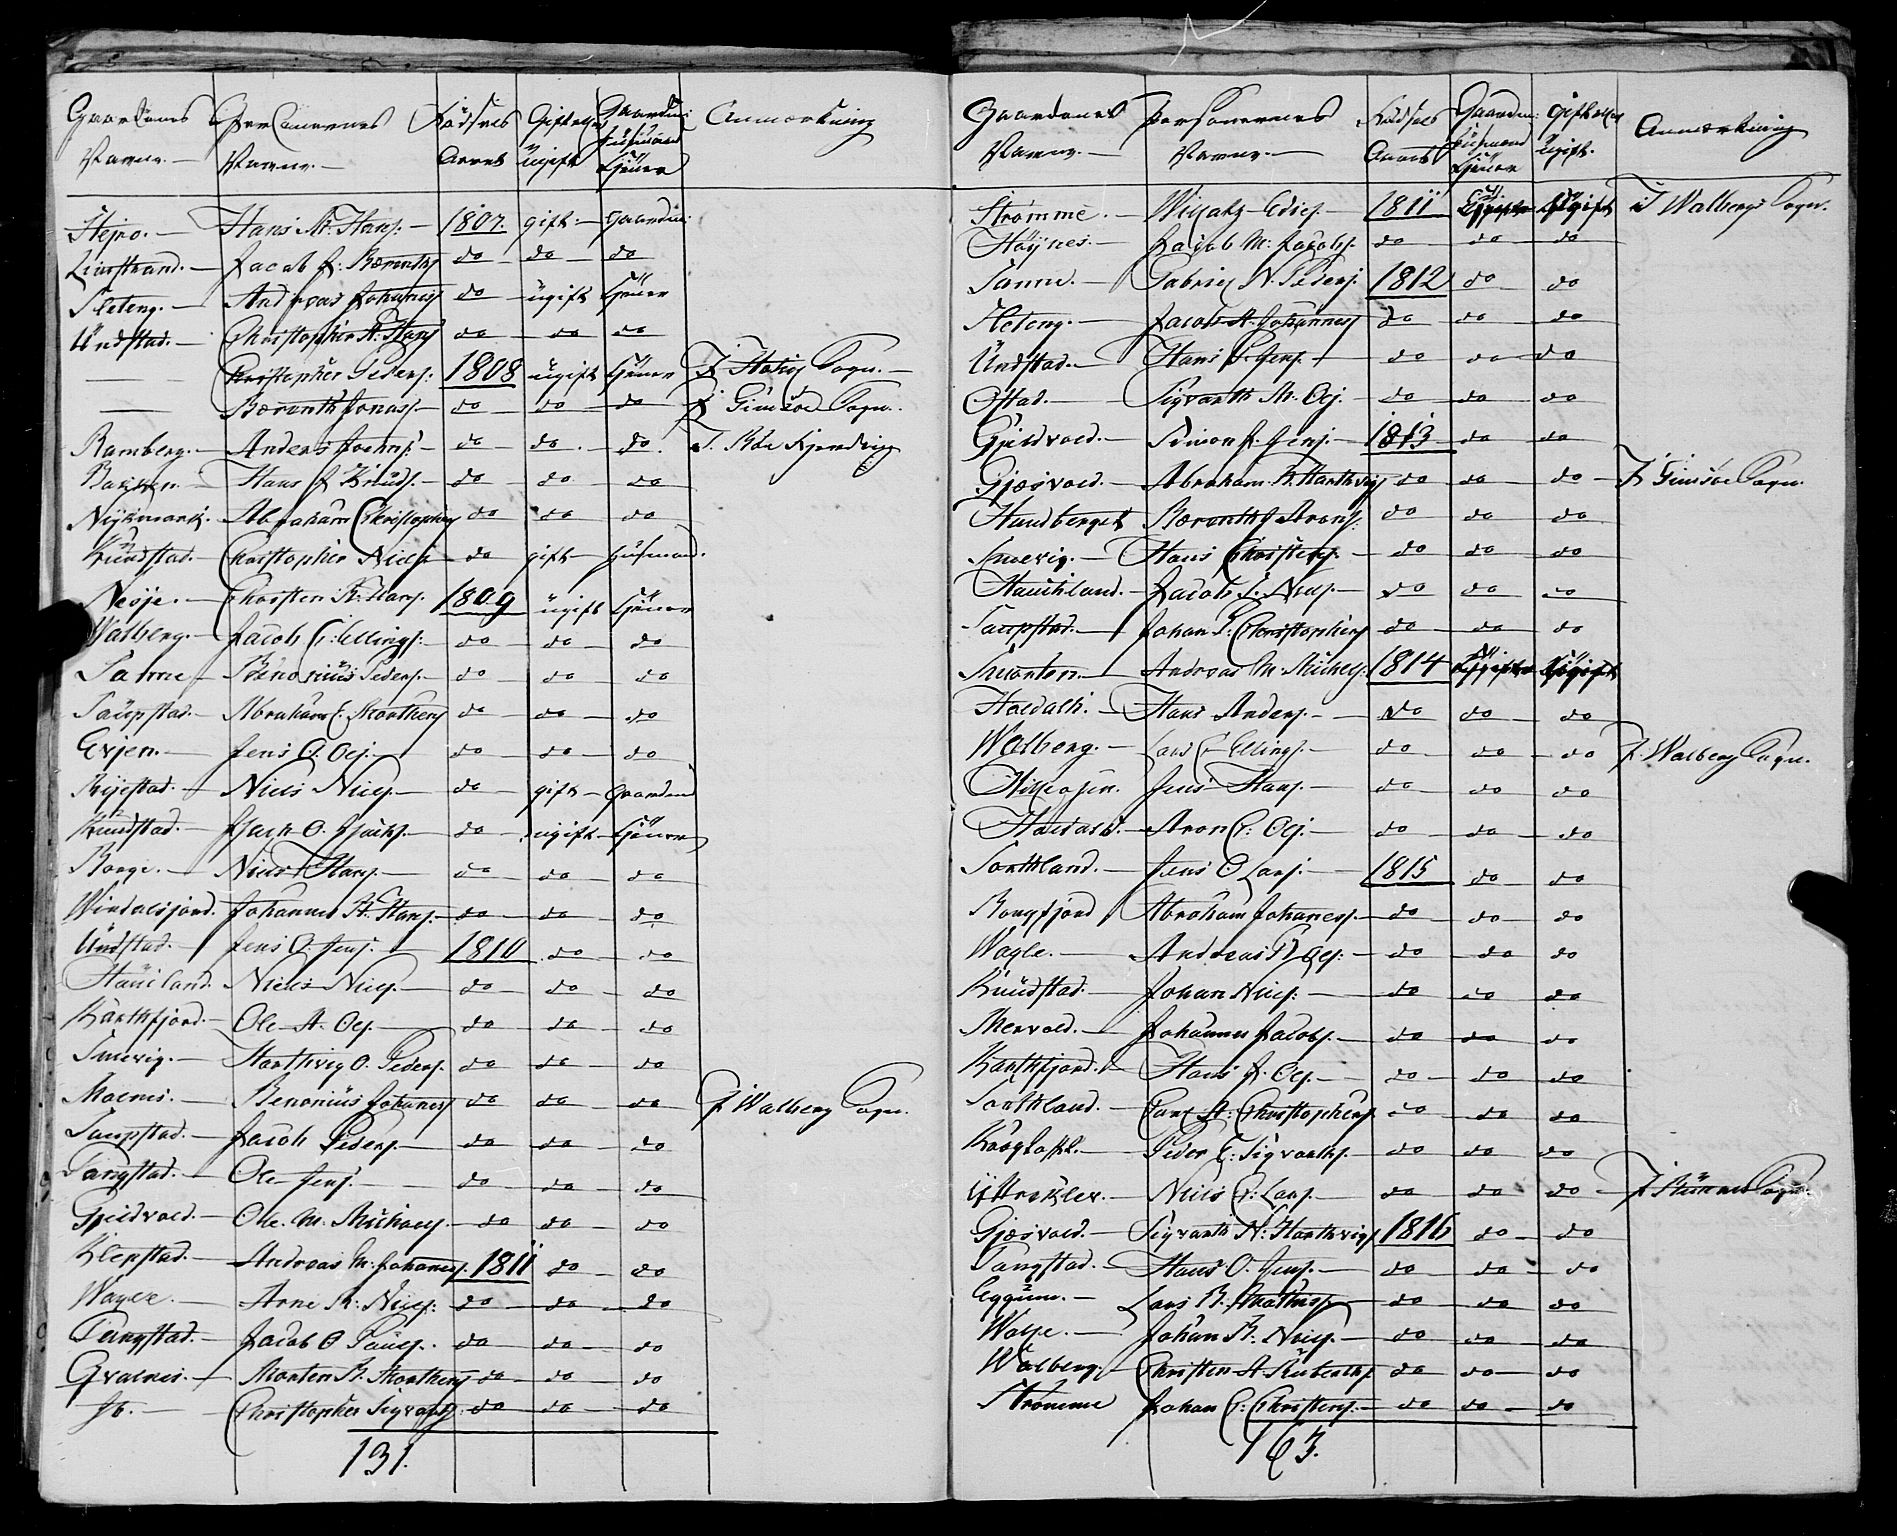 Gaardenes Navne. — Personernes Navne. — Födsels Aaret Gift eller Ugift Gaardm: Huusmand Tjener Anmærkning
Stejro. — Hans M. Hans. — 1807. gift — Gaardm:
Limstrand. — Jacob J. Bærenths do — do — do
Sletteng. — Andreas Johannes do — ugift Tjener
Undstad. — Christopher A. Hans do — do — do
— Christopher Peders: 1808 ugift Tjener I Hatsel Sogn. —
— Bærenth Jonas. — do — do — do I Gimsöe Sogn.
Ramberg. — Anders Joch — do — do. — do. I. Röe
Bakken. — Hans J Knuds. — do — do — do
Nykmark. Abraham Christophers do — do — do
Knudstad. — Christopher Niels — do gift — Huusmand.
Nesje. — Christen R. Hans. 1809 ugift Tjener
Walberg. — Jacob C: Ellings: — do — do — do
Sanne — Benonius Peders. — do — do — do
Saupstad. — Abraham E. Morthens do — do — do
Evjen. — Jens O. Oles. — do — do — do
Rystad. — Niels Niels. — do — gift — Gaardm
Knudstad. — Isach O. Isachs. — do — ugift — Tjener
Borge. — Niels Hans. — do — do — do
Windalsfjord. Johannes A. Hans. — do — do — do
Undstad. — Jens O. Jens. — 1810 do — do
Haugland. Niels Niels. — do — do — do
Kartfjord. — Ole A. Oles. — do — do — do
Smevig. — Harthvig O. Peders. do — do — do
Moenes. — Benonius Johannes do — do — do I Walberg Sogn.
Saupstad. — Jacob Peders. — do — do — do
Tangstad. — Ole Jens. — do — do — do
Gjeldvold. — Ole M. Michaels. — do — do — do
Klepstad. — Andreas M. Johannes. 1811 do — do
Arne R. Niels: — do — do — do
Tangstad. — Jacob O Pauls. do — do — do
Qvalnes. — Morten B. Morthens do — do — do
Ib. — Christopher Sigvarts: do — do — do
131.
Gaardenes Navne. — Personernes Navne. — Födsels Aaret Gaardm: Huusmand Tjener Gift eller Ugift. Anmærkning
Strømme. — 1811 Ugift I Walbergs Sogn.
Höynes. — Jacob M: Jacobs. do — do — do
Sanne. — Gabriel N. Peders. 1812 do — do
Sleteng. — Jacob A. Johannes do — do — do
Undstad. — Hans P. Jens. — do — do — do
Ostad. — Sigvarth M. Oles. — do — do — do
Gjeldvold. — Simon J. Jens. — 1813 do — do
Gjæsvold. — Abraham R. Harthvigs do — do — do — I Gimsöe Sogn.
Sundberget Bærenth J Arons. do — do — do
Smevig. — Hans Christens. — do — do — do
Haukland. — Jacob L. Niels. — do — do — do
Saupstad. — Johan P. Christophers do — do — do
Andreas M. Mickels. 1814 Ugift
Holdalh. — Hans Anders. — do — do — do
Walberg. — Lars C Ellings. — do — do — do I Walberg Sogn.
Jens Hans. — do — do — do
Aron C: Oles. do — do — do
Sortland. — Jens O Lars. — 1815 do — do
Borgfjord Abraham Johanes. — do — do — do
Wagle. — Andreas P. Oles. — do — do — do
Knudstad. — Johan Niels: — do — do — do
Mervold. — Johannes Jacobs. — do — do — do
Kartfjord. — Hans J. Oles. — do — do — do
Sortland. — Carl A: Christophers. do — do — do
Peder C: Sigvarths. — do — do — do
Niels C: Lars. — do — do — do — I Sogn
Gjæsvold. — Sigvarth N. Harthvigs 1816 do — do
Tangstad. — Hans O. Jens. — do — do — do
Eggum. — Lars B. Mathias — do — do — do
Wolje. — Johan R: Niels. — do — do — do
Walberg. — Christen A Ruberths. do — do — do
Strømme Johan C: Christens. — do — do — do
163.